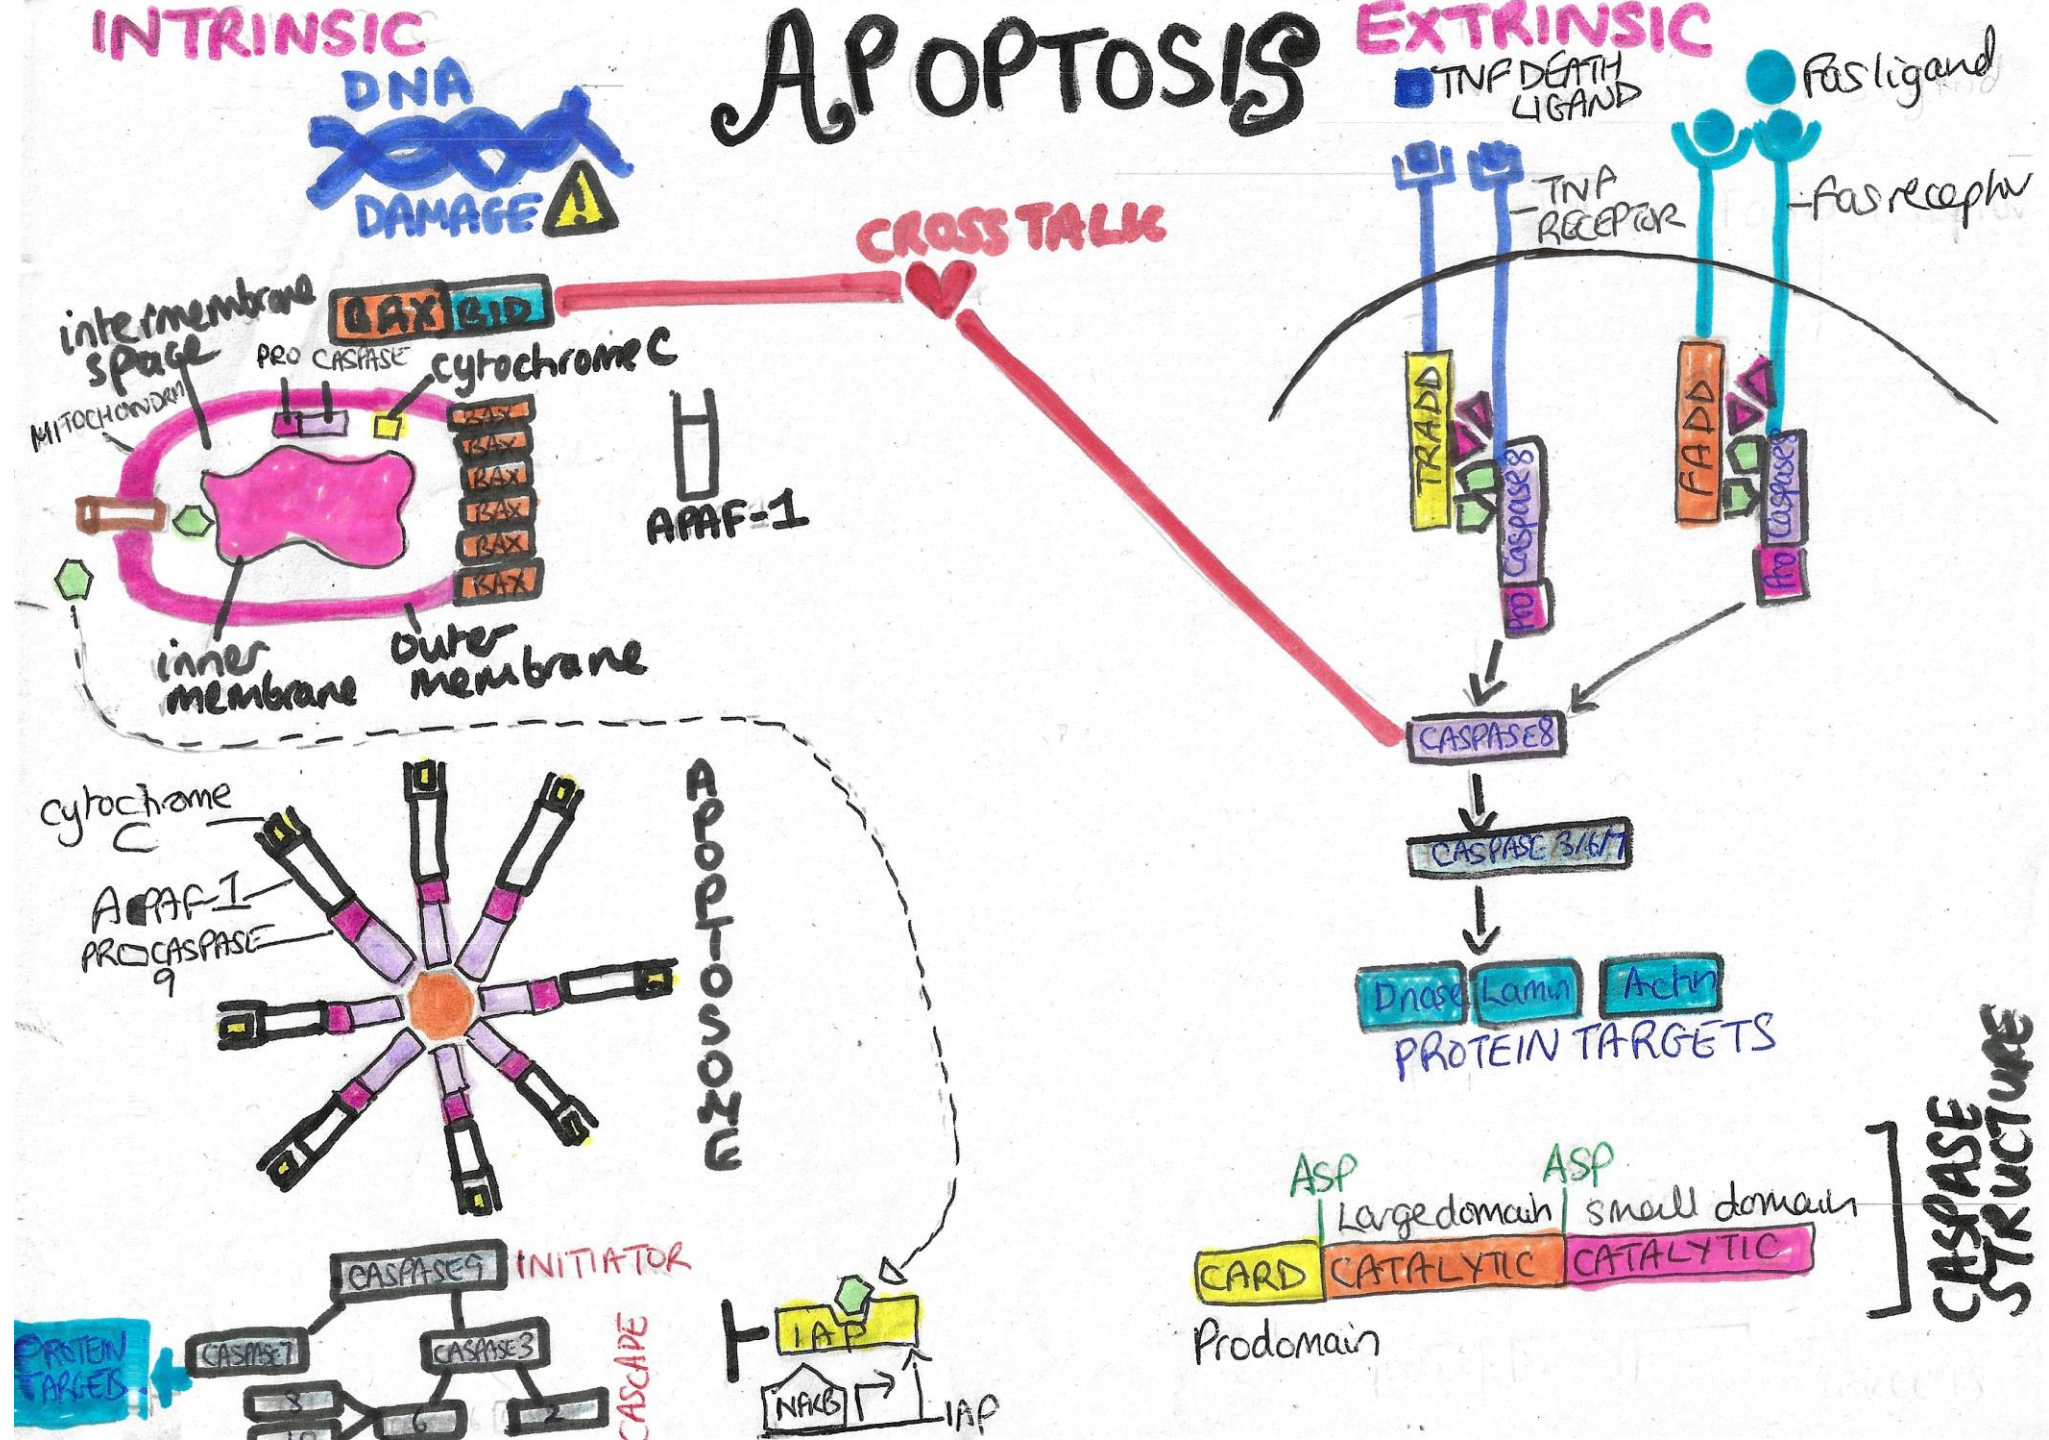 INTRINSIC
APOPTOSIS
EXTRINSIC
DNA
DAMAGE
TNF DEATH
LIGAND
Fas ligand
TNF
RECEPTOR
Fas receptor
CROSS TALK
BAX BID
intermembrane
space
PRO CASPASE
cytochrome C
MITOCHONDRIA
BAX
BAX
BAX
BAX
BAX
BAX
APAF-1
inner
membrane
outer
membrane
TRADD
Pro Caspase8
FADD
Pro Caspase8
CASPASE8
CASPASE 3/6/7
Dnase
Lamin
Actin
PROTEIN TARGETS
cytochrome
C
APAF-1
PROCASPASE
9
APOPTOSOME
CASPASE9
INITIATOR
CASPASE7
CASPASE3
CASCADE
PROTEIN
TARGETS
8
10
6
2
IAP
NFKB
IAP
ASP
ASP
Large domain
small domain
CARD
CATALYTIC
CATALYTIC
Prodomain
CASPASE
STRUCTURE